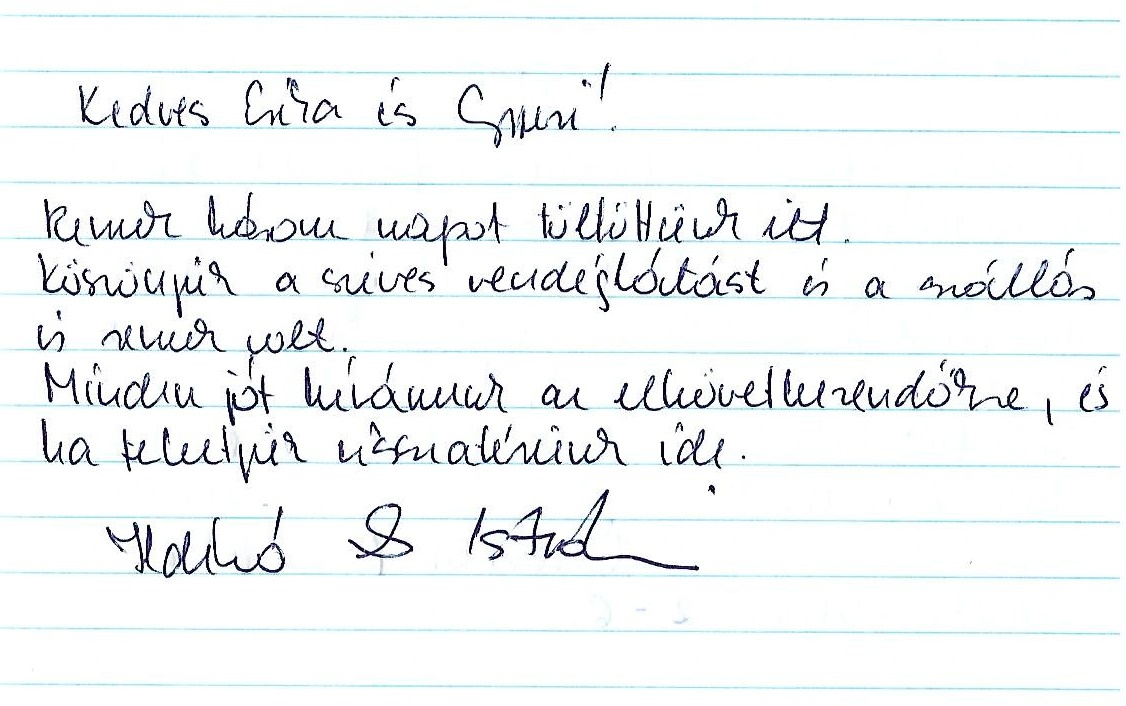 Kedves Erika és Gyuri!
Remek három napot töltöttünk itt.
Köszönjük a szíves vendéglátást és a szállás
is remek volt.
Minden jót kívánunk az elkövetkezendőkre, és
ha tehetjük visszatérünk ide.
Ildikó & István